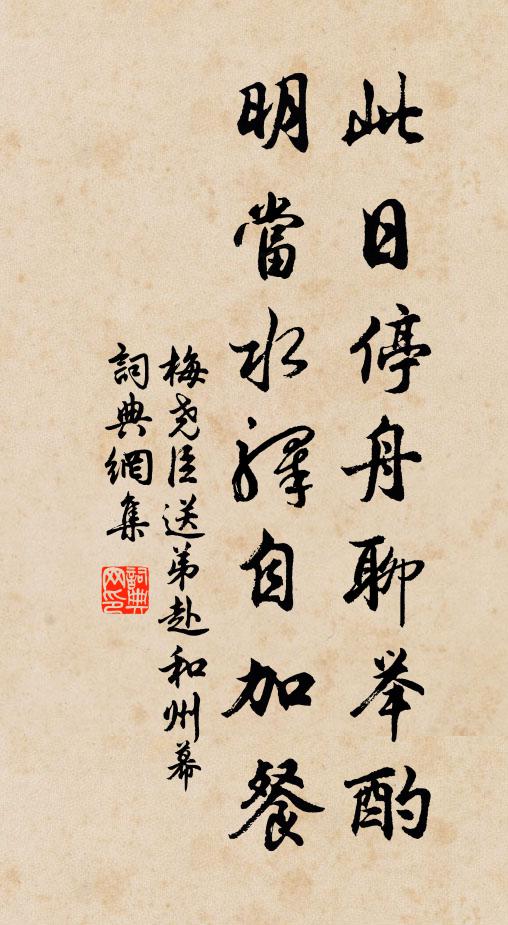 此日停舟聊举酌
明當水驛自加餐
梅尧臣送弟赴和州幕
詞典網集
詞典
网印